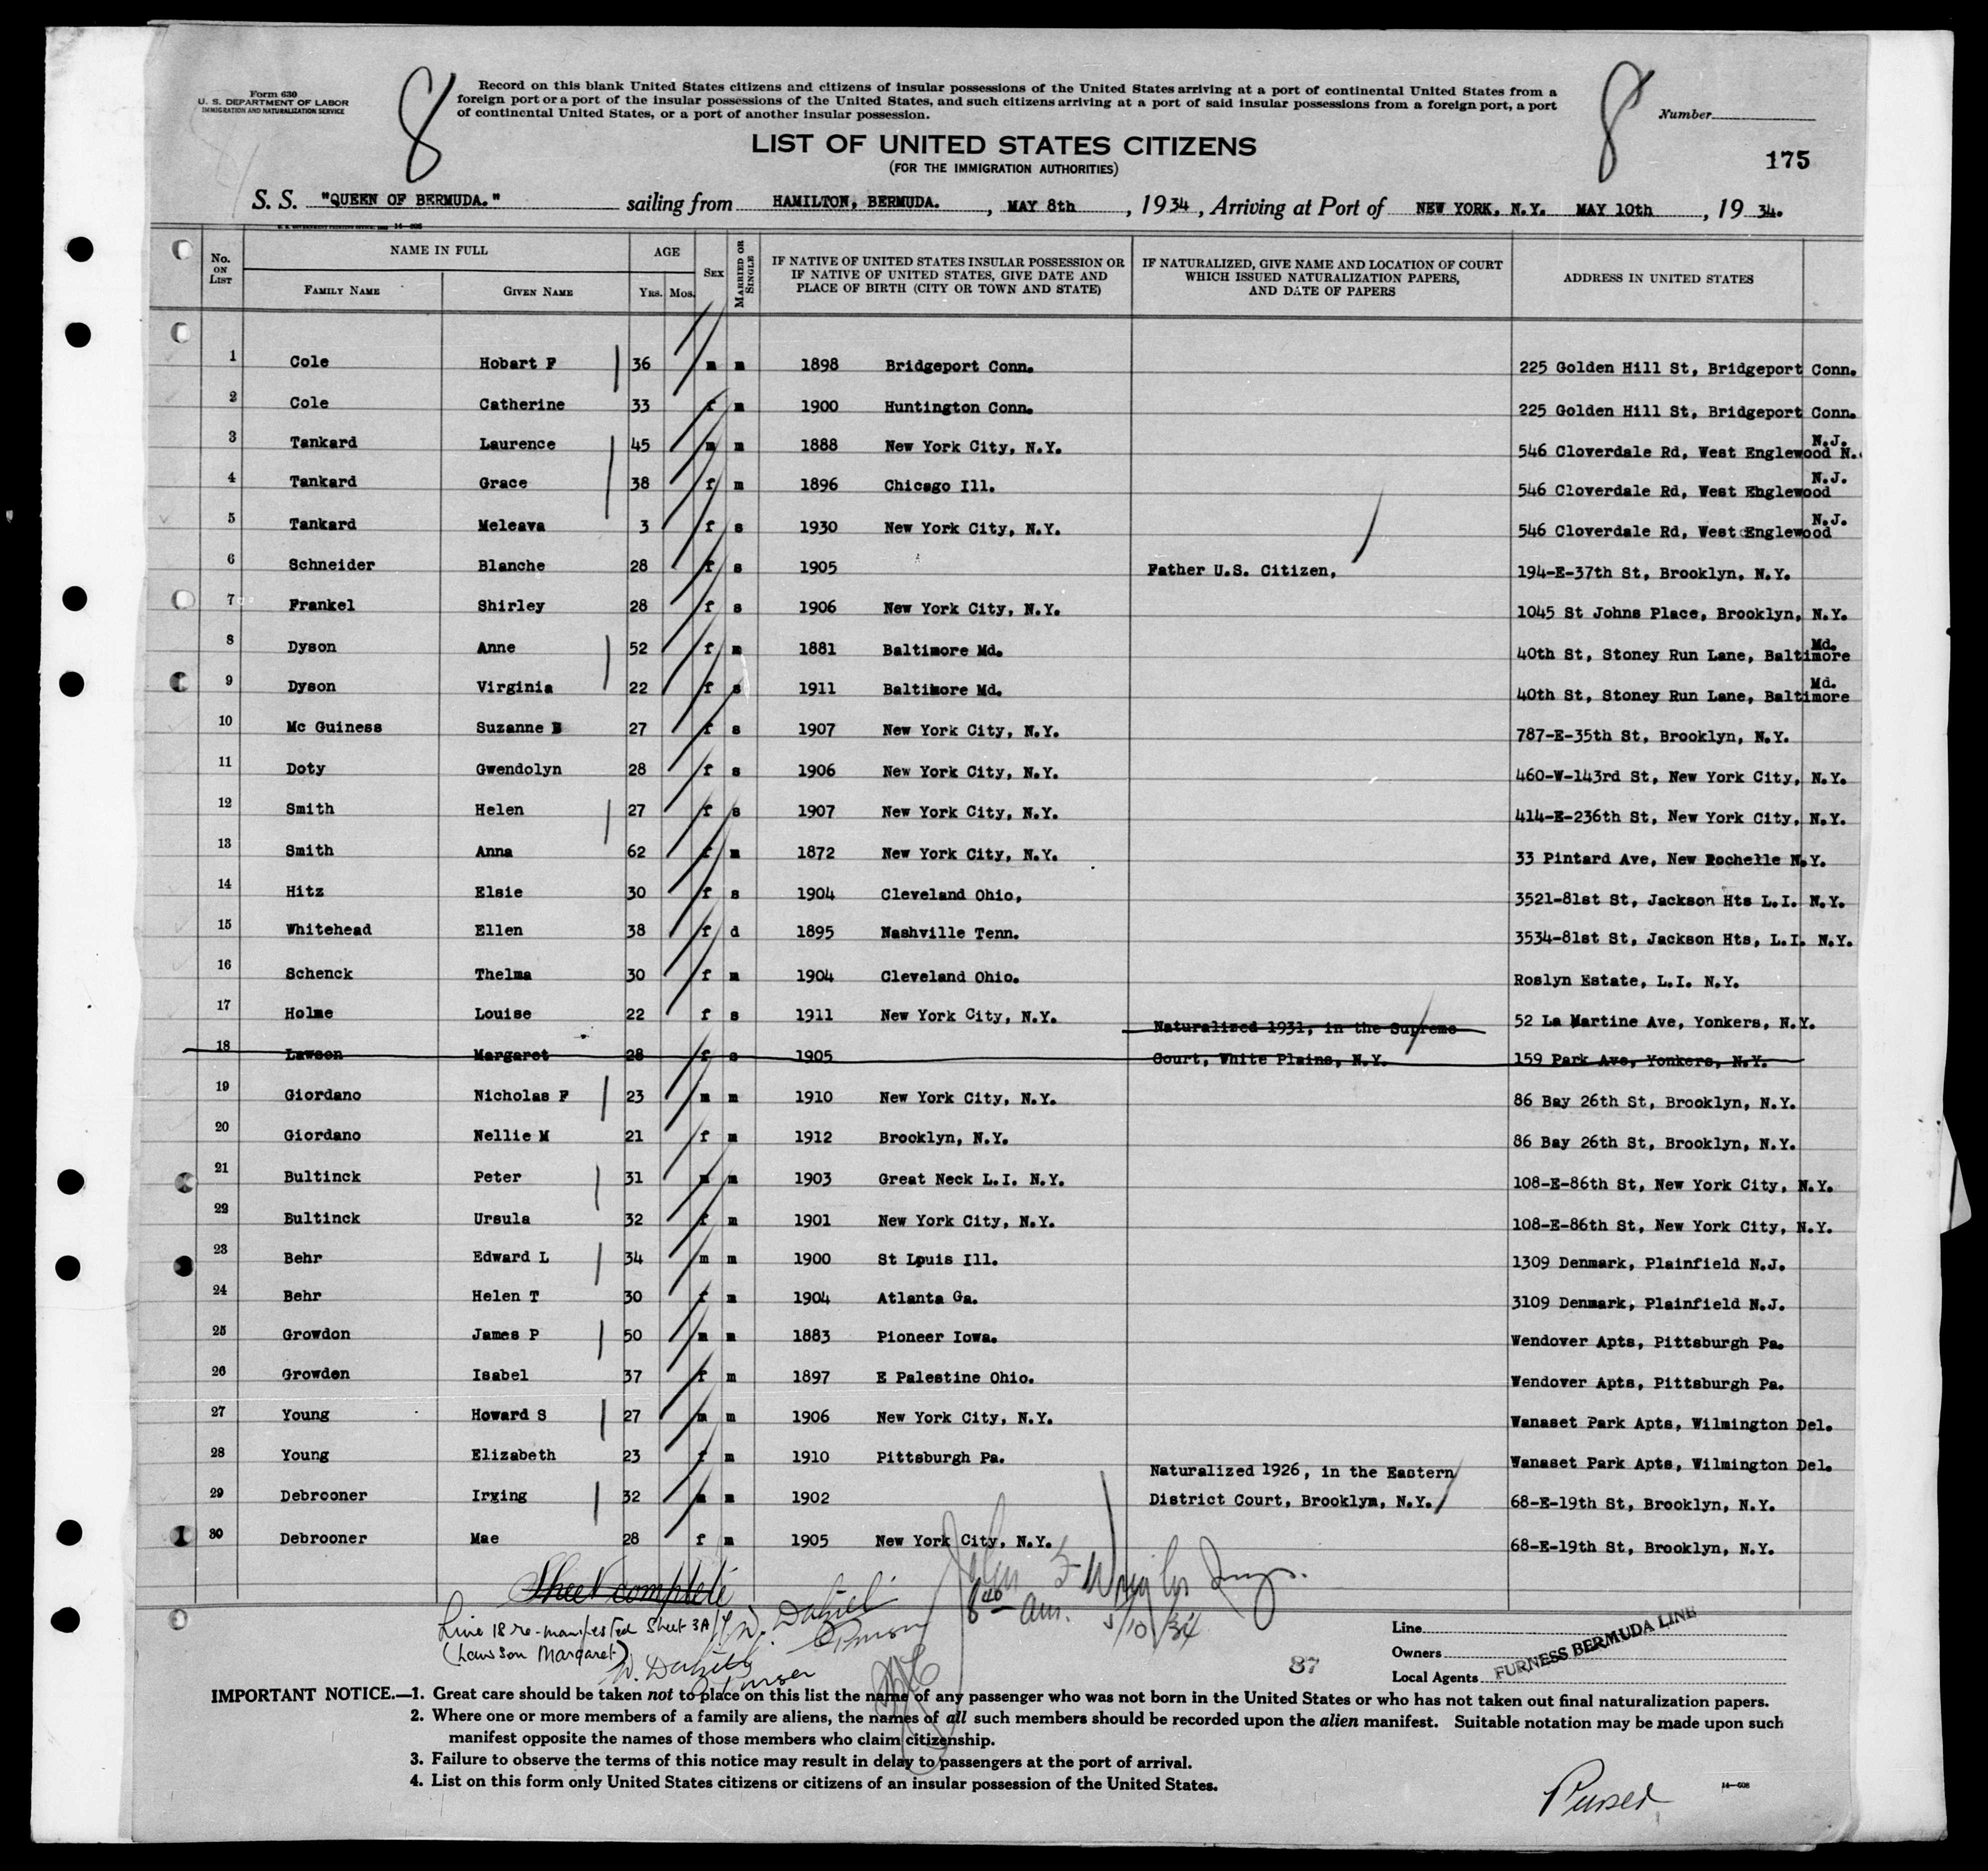 Form 630
U. S. DEPARTMENT OF LABOR
IMMIGRATION AND NATURALIZATION SERVICE
8
Record on this blank United States citizens and citizens of insular possessions of the United States arriving at a port of continental United States from a
foreign port or a port of the insular possessions of the United States, and such citizens arriving at a port of said insular possessions from a foreign port, a port
of continental United States, or a port of another insular possession.
8
Number
175
LIST OF UNITED STATES CITIZENS
(FOR THE IMMIGRATION AUTHORITIES)
S. S. "QUEEN OF BERMUDA." sailing from HAMILTON, BERMUDA. , MAY 8th , 1934 , Arriving at Port of NEW YORK, N.Y. MAY 10th , 19 34.
No. ON LIST NAME IN FULL FAMILY NAME GIVEN NAME AGE YRS. MOS. SEX MARRIED OR SINGLE
IF NATIVE OF UNITED STATES INSULAR POSSESSION OR
IF NATIVE OF UNITED STATES, GIVE DATE AND
PLACE OF BIRTH (CITY OR TOWN AND STATE)
IF NATURALIZED, GIVE NAME AND LOCATION OF COURT
WHICH ISSUED NATURALIZATION PAPERS,
AND DATE OF PAPERS
ADDRESS IN UNITED STATES
1 Cole Hobart F 36 m m 1898 Bridgeport Conn. 225 Golden Hill St, Bridgeport Conn.
2 Cole Catherine 33 f m 1900 Huntington Conn. 225 Golden Hill St, Bridgeport Conn.
3 Tankard Laurence 45 m m 1888 New York City, N.Y. 546 Cloverdale Rd, West Englewood N. N.J.
4 Tankard Grace 38 f m 1896 Chicago Ill. 546 Cloverdale Rd, West Ehglewood N.J.
5 Tankard Meleava 3 f s 1930 New York City, N.Y. 546 Cloverdale Rd, West Englewood N.J.
6 Schneider Blanche 28 f s 1905 Father U.S. Citizen, 194-E-37th St, Brooklyn, N.Y.
7 Frankel Shirley 28 f s 1906 New York City, N.Y. 1045 St Johns Place, Brooklyn, N.Y.
8 Dyson Anne 52 f m 1881 Baltimore Md. 40th St, Stoney Run Lane, Baltimore Md.
9 Dyson Virginia 22 f s 1911 Baltimore Md. 40th St, Stoney Run Lane, Baltimore Md.
10 Mc Guiness Suzanne B 27 f s 1907 New York City, N.Y. 787-E-35th St, Brooklyn, N.Y.
11 Doty Gwendolyn 28 f s 1906 New York City, N.Y. 460-W-143rd St, New York City, N.Y.
12 Smith Helen 27 f s 1907 New York City, N.Y. 414-E-236th St, New York City, N.Y.
13 Smith Anna 62 f m 1872 New York City, N.Y. 33 Pintard Ave, New Rochelle N.Y.
14 Hitz Elsie 30 f s 1904 Cleveland Ohio, 3521-81st St, Jackson Hts L.I. N.Y.
15 Whitehead Ellen 38 f d 1895 Nashville Tenn. 3534-81st St, Jackson Hts, L.I. N.Y.
16 Schenck Thelma 30 f m 1904 Cleveland Ohio. Roslyn Estate, L.I. N.Y.
17 Holme Louise 22 f s 1911 New York City, N.Y. 52 La Martine Ave, Yonkers, N.Y.
Naturalized 1931, in the Supreme
18 Lawson Margaret 28 f s 1905 Court, White Plains, N.Y. 159 Park Ave, Yonkers, N.Y.
19 Giordano Nicholas F 23 m m 1910 New York City, N.Y. 86 Bay 26th St, Brooklyn, N.Y.
20 Giordano Nellie M 21 f m 1912 Brooklyn, N.Y. 86 Bay 26th St, Brooklyn, N.Y.
21 Bultinck Peter 31 m m 1903 Great Neck L.I. N.Y. 108-E-86th St, New York City, N.Y.
22 Bultinck Ursula 32 f m 1901 New York City, N.Y. 108-E-86th St, New York City, N.Y.
23 Behr Edward L 34 m m 1900 St Louis Ill. 1309 Denmark, Plainfield N.J.
24 Behr Helen T 30 f m 1904 Atlanta Ga. 3109 Denmark, Plainfield N.J.
25 Growdon James P 50 m m 1883 Pioneer Iowa. Wendover Apts, Pittsburgh Pa.
26 Growdon Isabel 37 f m 1897 E Palestine Ohio. Wendover Apts, Pittsburgh Pa.
27 Young Howard S 27 m m 1906 New York City, N.Y. Wanaset Park Apts, Wilmington Del.
28 Young Elizabeth 23 f m 1910 Pittsburgh Pa. Wanaset Park Apts, Wilmington Del.
Naturalized 1926, in the Eastern
29 Debrooner Irging 32 m m 1902 District Court, Brooklyn, N.Y. 68-E-19th St, Brooklyn, N.Y.
30 Debrooner Mae 28 f m 1905 New York City, N.Y. 68-E-19th St, Brooklyn, N.Y.
Sheet complete
Line 18 re-manifested Sheet 3A/4
(Lawson Margaret)
Purser
John F
8 40 am. 5/10/34
87
Line
Owners
Local Agents
FURNESS BERMUDA LINE
IMPORTANT NOTICE.—1. Great care should be taken not to place on this list the name of any passenger who was not born in the United States or who has not taken out final naturalization papers.
2. Where one or more members of a family are aliens, the names of all such members should be recorded upon the alien manifest. Suitable notation may be made upon such
manifest opposite the names of those members who claim citizenship.
3. Failure to observe the terms of this notice may result in delay to passengers at the port of arrival.
4. List on this form only United States citizens or citizens of an insular possession of the United States.
14—608
Purser